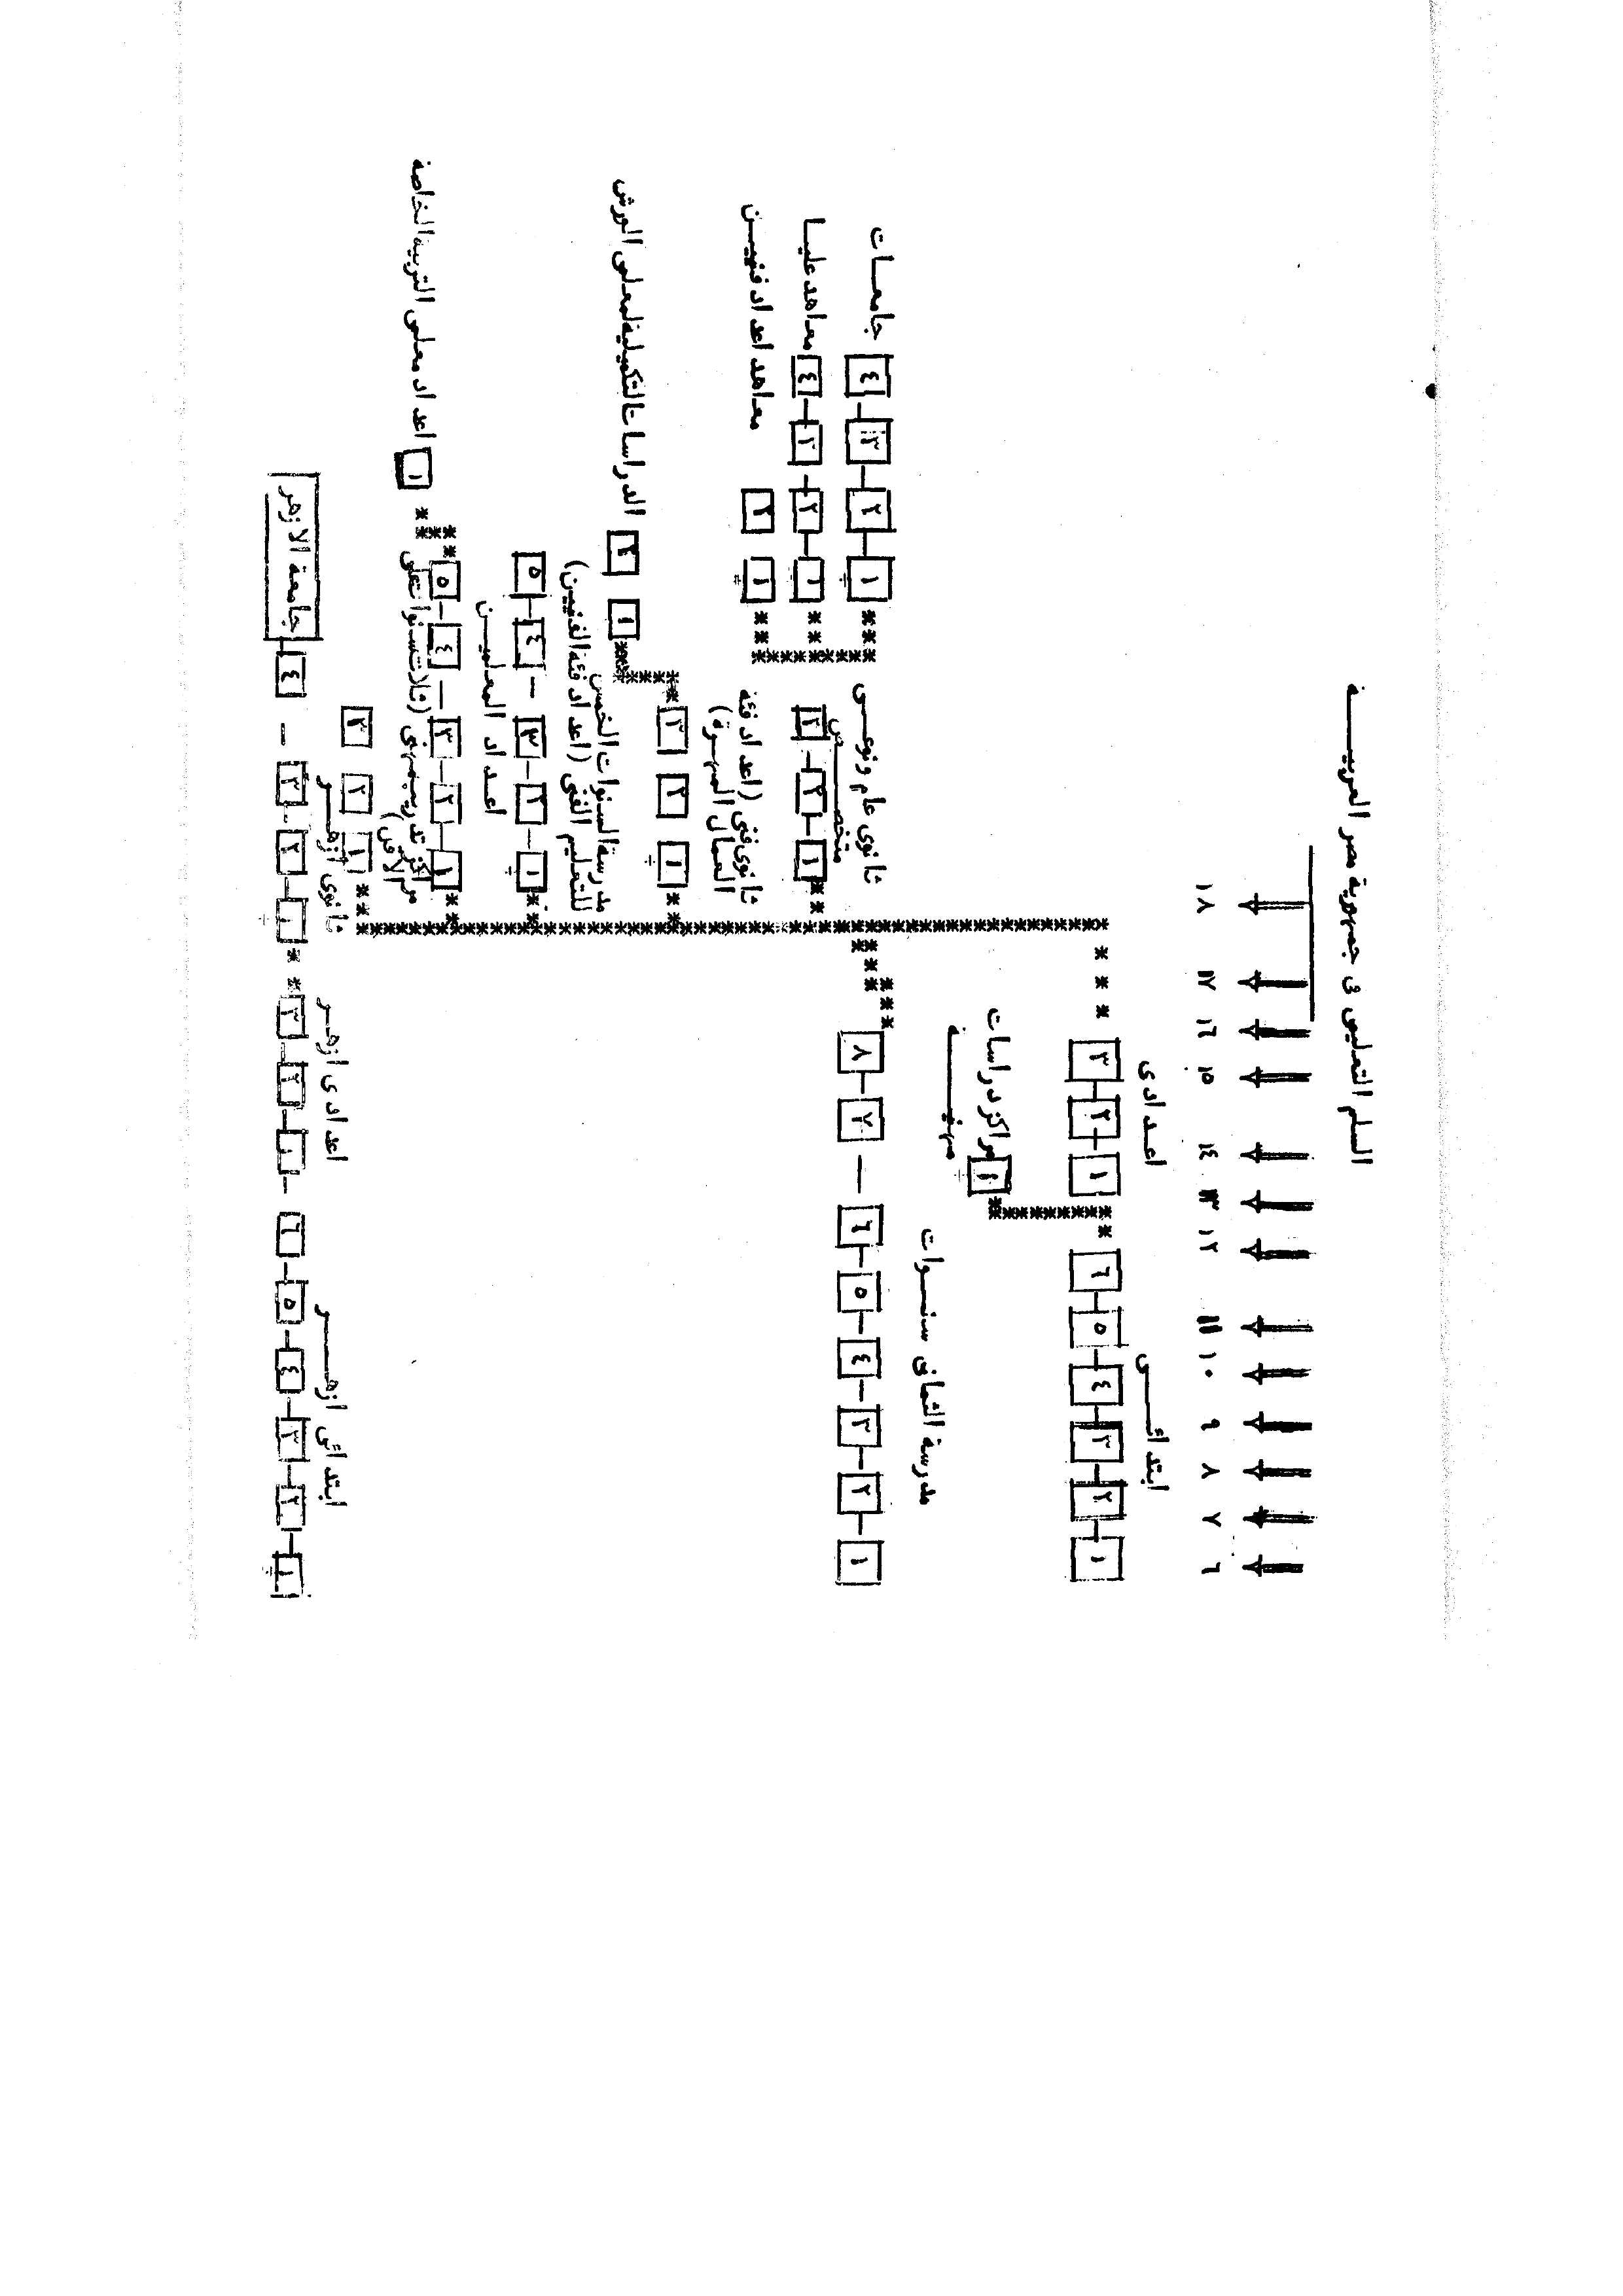 السلم التعليمى فى جمهورية مصر العربيـــــة
٦ ٧ ٨ ٩ ١٠ ١١ ١٢ ١٣ ١٤ ١٥ ١٦ ١٧ ١٨
ابتدائـــــى
اعـدادى
١ ٢ ٣ ٤ ٥ ٦
١ ٢ ٣
مراكز دراسات
مهنيـــــة
١
مدرسة الثمانى سنـــوات
١ ٢ ٣ ٤ ٥ ٦ ٧ ٨
ثانوى عام ونوعـــى
متخصـــص
١ ٢ ٣
جامعـــات
١ ٢ ٣ ٤
معاهد عليـــا
١ ٢ ٣ ٤
معاهد اعداد فنييـــن
١ ٢
ثانوى فنى (اعداد فئة
العمـــال المهـــرة)
١ ٢ ٣
الدراسات التكميلية لمعلمى الورش
١ ٢
مدرسة السنوات الخمس
للتعليم الفنى (اعداد فئة الفنيين)
١ ٢ ٣ ٤ ٥
اعـــداد المعلميـــن
١ ٢ ٣ ٤ ٥
اعداد معلمى التربية الخاصة
١
مراكز تدريب مهنى (ثلاث سنوات على
الاقل)
ثانوى ازهـــر
١ ٢ ٣
ابتدائى ازهـــــر
اعدادى ازهـــر
١ ٢ ٣ ٤ ٥ ٦
١ ٢ ٣
١ ٢ ٣ ٤
جامعة الازهر